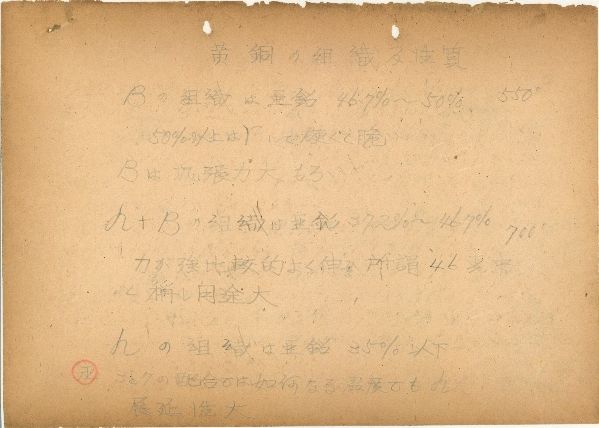 黄銅の組織及性質
Bの組織は亜鉛 46.7%〜50% 550°
50%以上は硬くて脆
Bは抗張力大 もろい
h+Bの組織は亜鉛 37.2%〜46.7% 700°
力が強比較的よく伸 所謂 46
称し用途大
hの組織は亜鉛 35%以下
の配合では如何なる温度でも h
展延性大